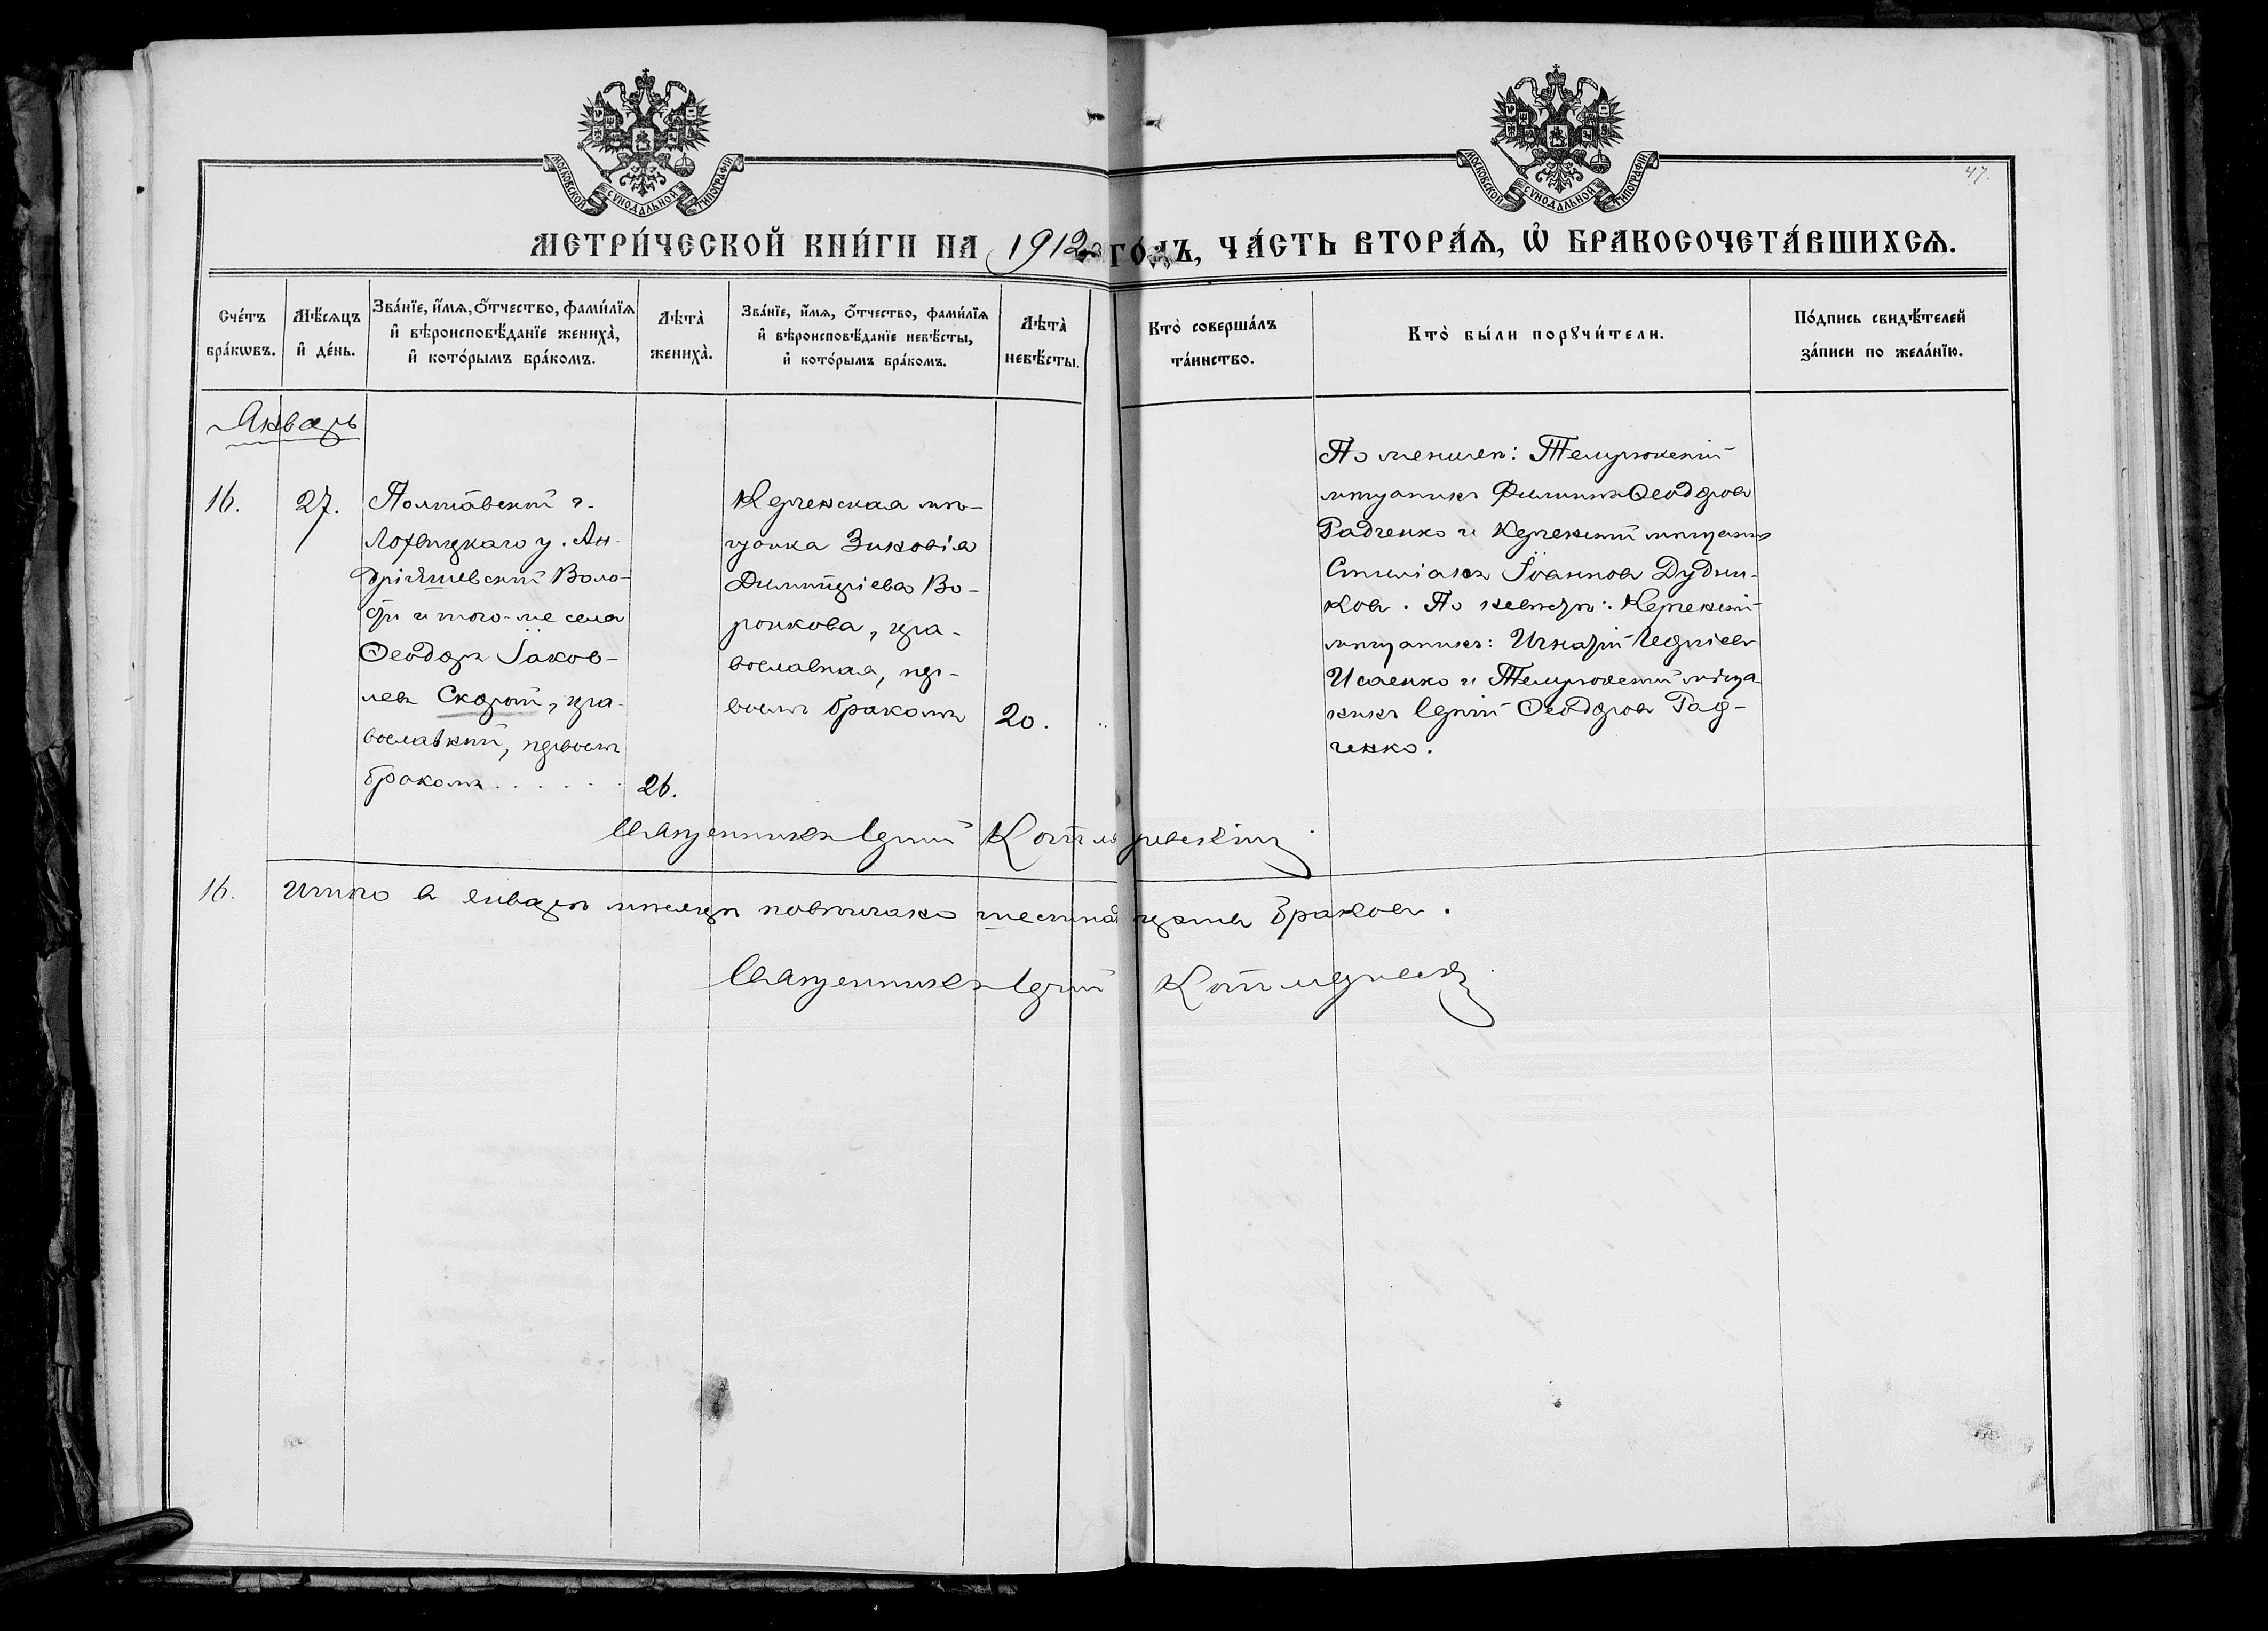 МОСКОВСКОЙ СѴНОДАЛЬНОЙ ТИПОГРАФІИ
МОСКОВСКОЙ СѴНОДАЛЬНОЙ ТИПОГРАФІИ
47.
МЕТРИ́ЧЕСКОЙ КНИ́ГИ НА 1912 ГО́ДЪ, ЧА́СТЬ ВТОРА́Я, Ѿ БРАКОСОЧЕТА́ВШИХСѦ.
Сче́тъ
бра́кωвъ.
Мѣ́сѧцъ
и҆ де́нь.
Зва́нїе, и҆́мѧ, ѻ҆́тчество, фами́лїѧ
и҆ вѣроисповѣ́данїе жениха̀,
и҆ кото́рымъ бра́комъ.
Лѣта̀
жениха̀.
Зва́нїе, и҆́мѧ, ѻ҆́тчество, фами́лїѧ
и҆ вѣроисповѣ́данїе невѣ́сты,
и҆ кото́рымъ бра́комъ.
Лѣта̀
невѣ́сты.
Кто̀ соверша́лъ
та́инство.
Кто̀ бы́ли порꙋчи́тели.
По́дпись свидѣ́телей
за́писи по жела́нїю.
Январь
16.
27.
Полтавской г.
Лохвицкаго у. Ан-
Воло-
сти и того-же села
Ѳеодоръ Іаков-
левъ Скорый, пра-
вославный, первымъ
бракомъ . . . . . .
26.
Керченская мѣ-
щанка Зиновія
Димитріева Во-
ронкова, пра-
вославная, пер-
вымъ бракомъ
20.
По женихѣ: Темрюкскій
мѣщанинъ Филиппъ Ѳеодоровъ
Радченко и Керченскій мѣщанинъ
Стиліанъ Іоанновъ Дудни-
ковъ. По невѣстѣ: Керченскій
мѣщанинъ: Игнатій Сергіевъ
Исаенко и Темрюкскій мѣща-
нинъ Сергій Ѳеодоровъ Рад-
ченко.
Священникъ Сергій Котляревскій
16. Итого въ январѣ мѣсяцѣ повѣнчано шестнадцать браковъ.
Священникъ Сергій Котляревскій